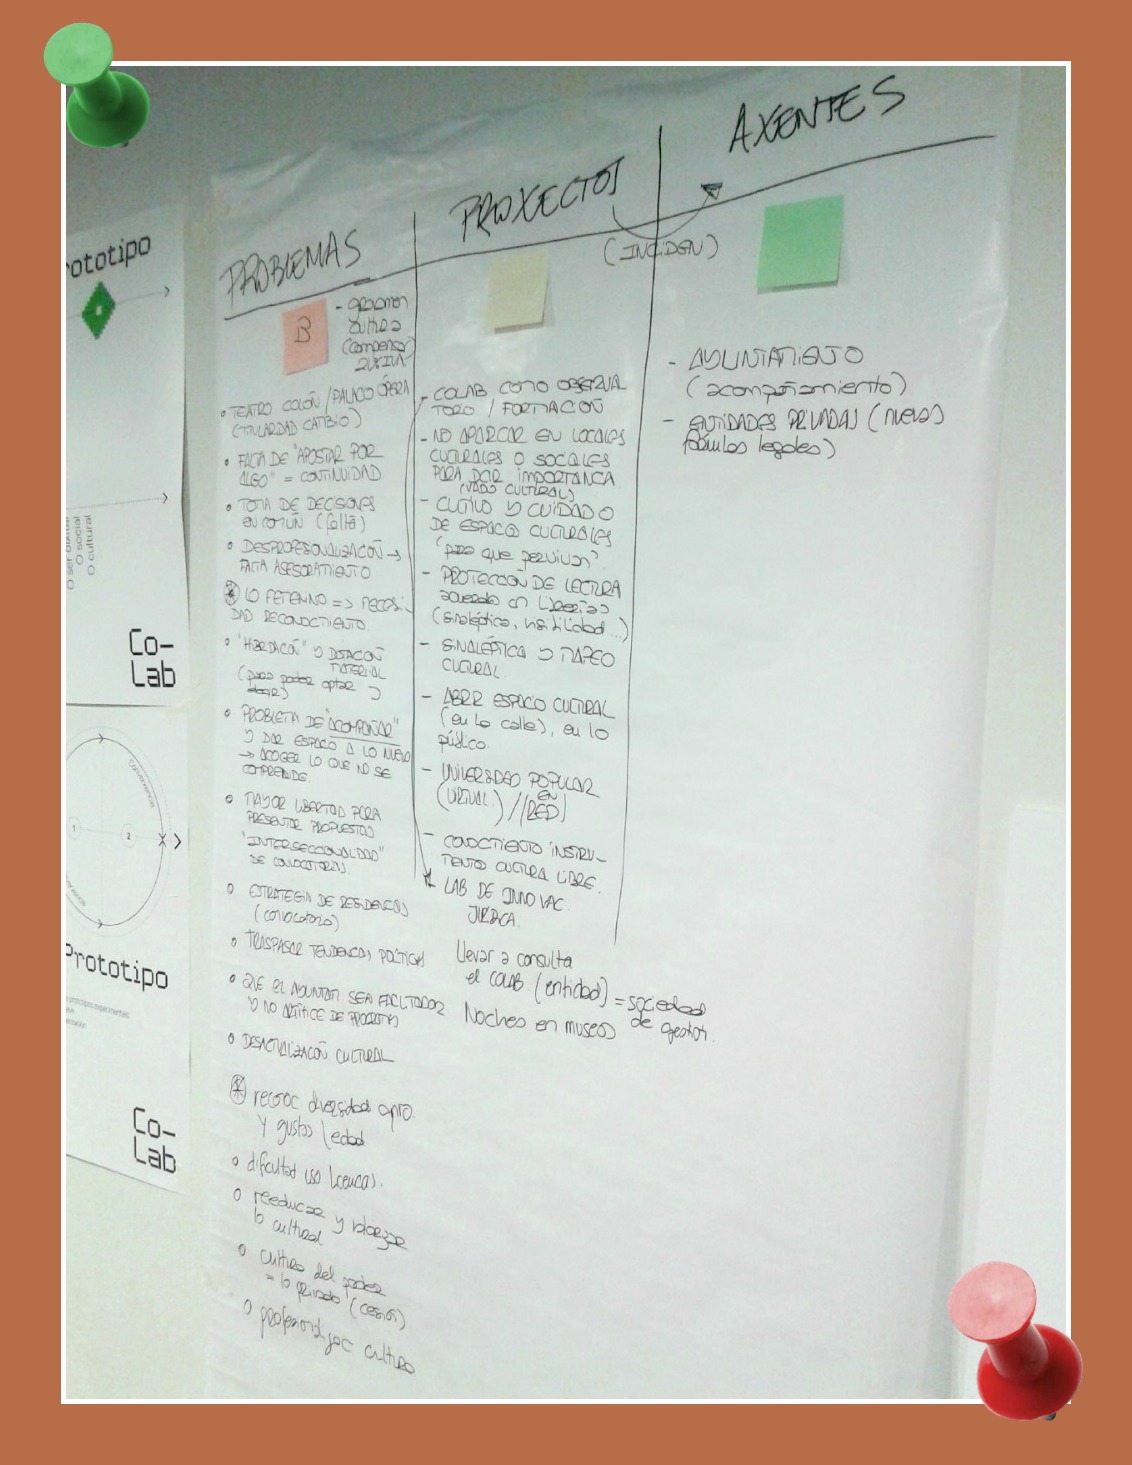 AXENTES
PROXECTOS
(INCIDEN)
PROBLEMAS
B
- 
cultura
(compensa)
• TEATRO COLÓN / PALACIO ÓPERA
(TITULARIDAD CAMBIO)
• FALTA DE "APOSTAR POR
ALGO" = CONTINUIDAD
• TOMA DE DECISIONES
EN COMÚN (falta)
• DESPROFESIONALIZACIÓN →
FALTA ASESORAMIENTO
LO FEMENINO => NECESI-
DAD RECONOCIMIENTO
• "HIBRIDACIÓN" Y DOTACIÓN
MATERIAL
(para poder optar
• PROBLEMA DE "ACOMPAÑAR"
Y DAR ESPACIO A LO NUEVO
→ ACOGER LO QUE NO SE
COMPRENDE
• MAYOR LIBERTAD PARA
PRESENTAR PROPUESTAS
"INTERSECCIONALIDAD"
DE CONVOCATORIAS.
• ESTRATEGIA DE RESIDENCIAS
(convocatoria)
• TRASPASAR TENDENCIAS POLÍTICAS
• QUE EL AYUNTAM. SEA FACILITADOR
Y NO ARTÍFICE DE PROYECTOS
• DESACTUALIZACIÓN CULTURAL
recoñoc diversidad
y gustos / edad
• dificultad uso licencias.
• reeducar y valorizar
lo cultural
• cultura del poder
= lo privado (cesión)
• cultura
- COLAB COMO OBSERVA-
TORIO / FORMACIÓN
- NO APARCAR EN LOCALES
CULTURALES O SOCIALES
PARA DAR IMPORTANCIA
(VADO CULTURAL)
- CULTIVO Y CUIDADO
DE ESPACIOS CULTURALES
"para que pervivan".
- PROTECCIÓN DE LECTURA
acuerdo con librerías
(sinaléptica, visibilidad...)
- SINALÉPTICA Y MAPEO
CULTURAL
- ABRIR ESPACIO CULTURAL
(en la calle), en lo
público.
- UNIVERSIDAD POPULAR
(VIRTUAL) / EN (RED)
- CONOCIMIENTO INSTRU-
MENTOS CULTURA LIBRE.
LAB DE INNOVAC.
JURÍDICA.
Llevar a consulta
el COLAB. (entidad) = sociedad
de gestión.
Noches en museos
- AYUNTAMIENTO
(acompañamiento)
- ENTIDADES PRIVADAS (nuevas
fórmulas legales)
ototipo
O social
O cultural
Co-
Lab
Convergencia
1
2
Prototipo
Co-
Lab